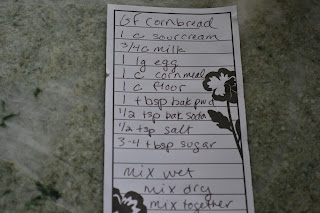 GF cornbread
1 c sourcream
3/4 c milk
1 lg egg
1 c cornmeal
1 c floor
1 tbsp bak pwd
1/2 tsp bak soda
1/2 tsp salt
3-4 tbsp sugar
mix wet
mix dry
mix together